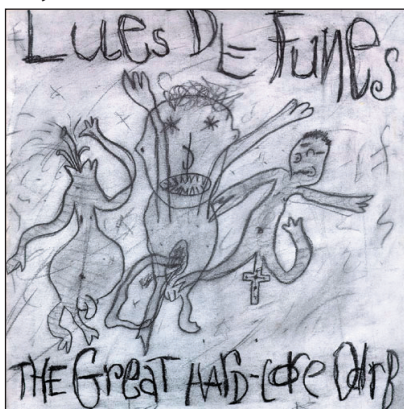 LUes DE FuNes
THE GReaT HARD-CoRe